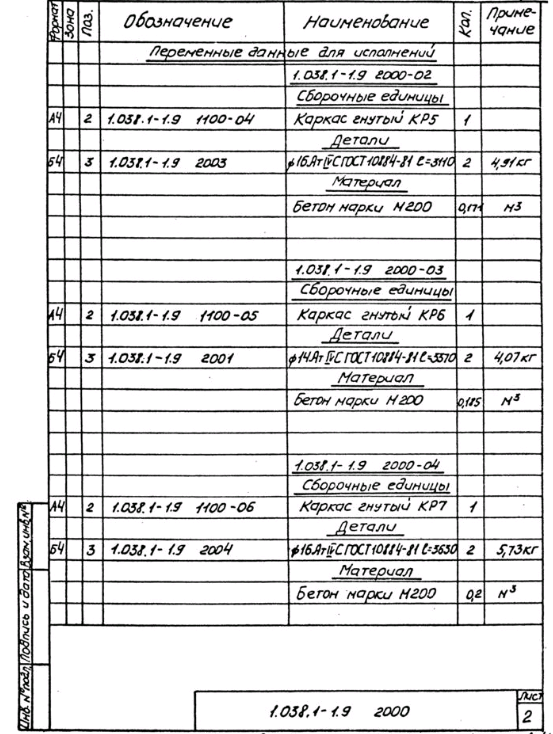 Формат Зона Поз. Обозначение Наименование Кол. Приме-чание
Переменные данные для исполнений
1.038.1-1.9 2000-02
Сборочные единицы
А4 2 1.038.1-1.9 1100-04 Каркас гнутый КР5 1
Детали
Б4 3 1.038.1-1.9 2003 ϕ16.АтIVС ГОСТ10884-81 ℓ=3110 2 4,91кг
Материал
Бетон марки М200 0,171 м3
1.038.1-1.9 2000-03
Сборочные единицы
А4 2 1.038.1-1.9 1100-05 Каркас гнутый КР6 1
Детали
Б4 3 1.038.1-1.9 2001 ϕ14.АтIVС ГОСТ10884-81 ℓ=3370 2 4,07кг
Материал
Бетон марки М200 0,185 м3
1.038.1-1.9 2000-04
Сборочные единицы
А4 2 1.038.1-1.9 1100-06 Каркас гнутый КР7 1
Детали
Б4 3 1.038.1-1.9 2004 ϕ16.АтIVС ГОСТ10884-81 ℓ=3630 2 5,73кг
Материал
Бетон марки М200 0,2 м3
Инв. № подл. Подпись и дата Взам. инв. №
1.038.1-1.9 2000
Лист
2